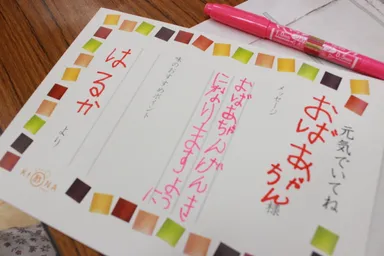 元気でいてね
おばあちゃん様
メッセージ
おばあちゃんげんき
になりますように
味のおすすめポイント
はるか より